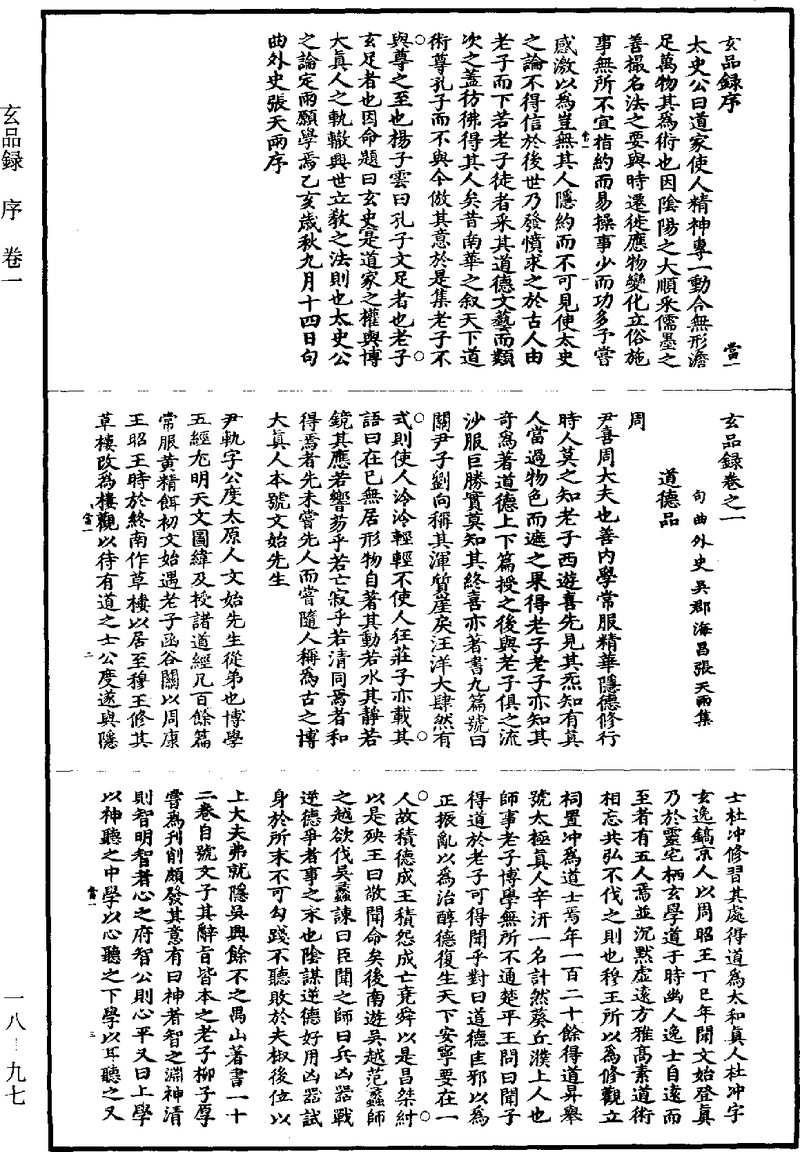 玄品録 序 卷一
一八—九七
玄品録序
當一
太史公曰道家使人精神專一動合無形澹
足萬物其爲術也因陰陽之大順采儒墨之
善撮名法之要與時遷徙應物變化立俗施
事無所不宜指約而易操事少而功多予嘗
感激以爲豈無其人隱約而不可見使太史
之論不得信於後世乃發憤求之於古人由
老子而下若老子徒者采其道德文藝而類
次之蓋彷彿得其人矣昔南華之叙天下道
術尊孔子而不與今倣其意於是集老子不
與尊之至也楊子雲曰孔子文足者也老子
玄足者也因命題曰玄史寔道家之權輿博
大真人之軌轍與世立教之法則也太史公
之論定而願學焉乙亥歲秋九月十四日句
曲外史張天雨序
玄品録卷之一
句曲外史吳郡海昌張天雨集
道德品
周
尹喜周大夫也善内學常服精華隱德修行
時人莫之知老子西遊喜先見其炁知有真
人當過物色而遮之果得老子老子亦知其
奇爲著道德上下篇授之後與老子俱之流
沙服巨勝實莫知其終喜亦著書九篇號曰
關尹子劉向稱其渾質崖戾汪洋大肆然有
式則使人泠泠輕輕不使人狂莊子亦載其
語曰在已無居形物自著其動若水其靜若
鏡其應若響芴乎若亡寂乎若清同焉者和
得焉者先未嘗先人而嘗隨人稱爲古之博
大真人本號文始先生
尹軌字公度太原人文始先生從弟也博學
五經尤明天文圖緯及授諸道經凡百餘篇
常服黃精餌初文始遇老子函谷關以周康
王昭王時於終南作草樓以居至穆王修其
草樓改爲樓觀以待有道之士公度遂與隱
士杜冲修習其處得道爲太和真人杜冲字
玄逸鎬京人以周昭王丁巳年聞文始登真
乃於靈宅栖玄學道于時幽人逸士自遠而
至者有五人焉並沉默虛遠方雅高素道術
相忘共弘不伐之則也穆王所以爲修觀立
祠置冲爲道士焉年一百二十餘得道昇舉
號太極真人辛㳂一名計然葵丘濮上人也
師事老子博學無所不通楚平王問曰聞子
得道於老子可得聞乎對曰道德匡邪以爲
正振亂以爲治醇德復生天下安寧要在一
人故積德成王積怨成亡堯舜以是昌桀紂
以是殃王曰敬聞命矣後南遊吳越范蠡師
之越欲伐吳蠡諫曰臣聞之師曰兵凶器戰
逆德爭者事之末也陰謀逆德好用凶器試
身於所末不可勾踐不聽敗於夫椒後位以
上大夫弗就隱吳興餘不之禺山著書一十
二卷自號文子其辭旨皆本之老子柳子厚
嘗爲刊削頗發其意有曰神者智之淵神清
則智明智者心之府智公則心平又曰上學
以神聽之中學以心聽之下學以耳聽之又